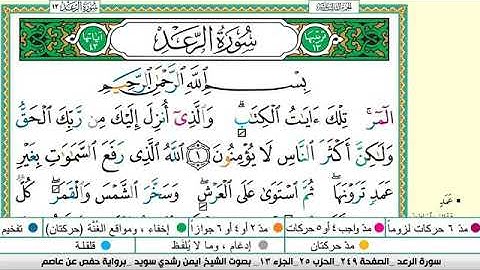 سورة الرعد ١٣
سُورَةُ الرَّعْدِ
بِسْمِ اللَّهِ الرَّحْمَٰنِ الرَّحِيمِ
الٓمٓرۚ تِلْكَ ءَايَٰتُ الْكِتَٰبِۗ وَالَّذِىٓ أُنزِلَ إِلَيْكَ مِن رَّبِّكَ الْحَقُّ
وَلَٰكِنَّ أَكْثَرَ النَّاسِ لَا يُؤْمِنُونَ ١ اللَّهُ الَّذِى رَفَعَ السَّمَٰوَٰتِ بِغَيْرِ
عَمَدٍ تَرَوْنَهَاۖ ثُمَّ اسْتَوَىٰ عَلَى الْعَرْشِۖ وَسَخَّرَ الشَّمْسَ وَالْقَمَرَۖ كُلٌّ
عَمَدٍ
مدّ ٦ حركات لزوماً مدّ واجب ٤ أو ٥ حركات مدّ ٢ أو ٤ أو ٦ جوازاً إخفاء، ومواقع الغُنَّة (حركتان) تفخيم
مدّ حركتان إدغام، وما لا يُلفظ قلقلة
سورة الرعد _الصفحة ٢٤٩_ الحزب ٢٥_ الجزء ١٣_ بصوت الشيخ ايمن رشدي سويد _برواية حفص عن عاصم